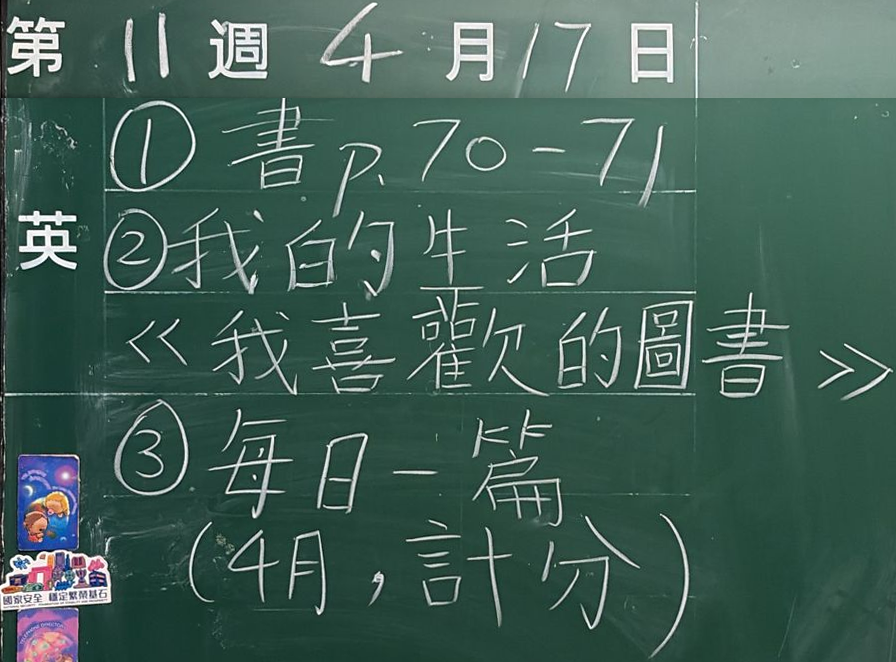 第 11 週 4 月 17 日
英
① 書 p. 70-71
② 我的生活
《我喜歡的圖書》
③ 每日一篇
(4月，計分)
國家安全 穩定繁榮基石